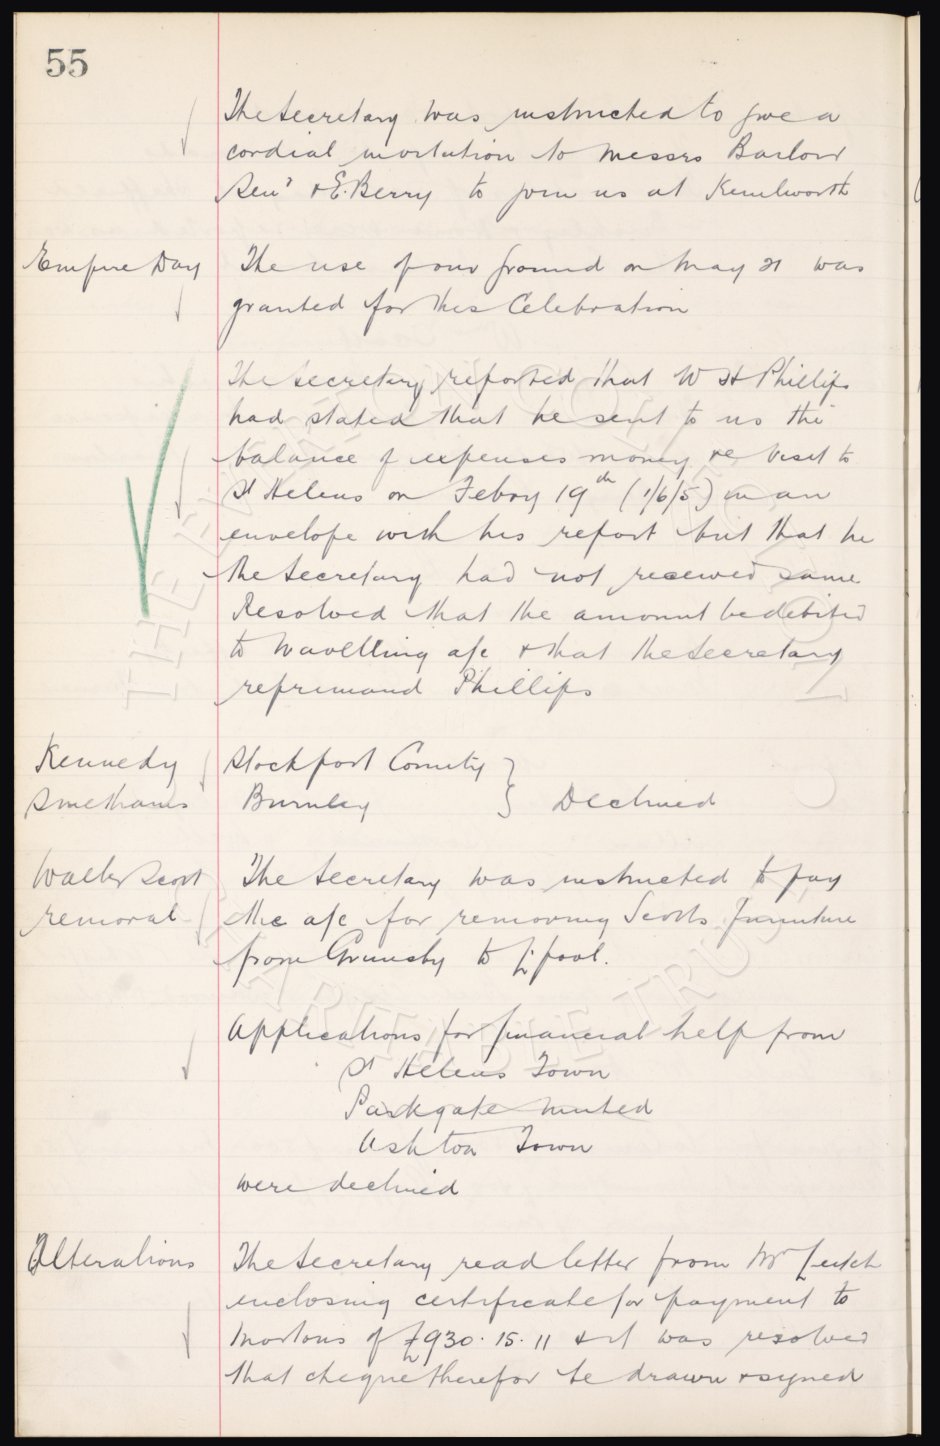 55
The Secretary was instructed to give a
cordial invitation to Messrs Barlow
Senr & E. Berry to join us at Kenilworth
Empire Day The use of our ground on May 21 was
granted for this Celebration
The Secretary reported that W H Phillips
had stated that he sent to us the
balance of expenses money re visit to
St Helens on Febry 19th (1/6/5) in an
envelope with his report but that he
the Secretary had not received same
Resolved that the amount be debited
to travelling a/c & that the Secretary
reprimand Phillips
Kennedy Stockport County }
Smethams Burnley } Declined
Walter Scott The Secretary was instructed to pay
removal the a/c for removing Scotts furniture
from Grimsby to L'pool.
Applications for financial help from
St Helens Town
Parkgate United
Ashton Town
were declined
Alterations The Secretary read letter from Mr Leitch
enclosing certificate for payment to
Mortons of £930.15.11 & it was resolved
that cheque therefor be drawn & signed